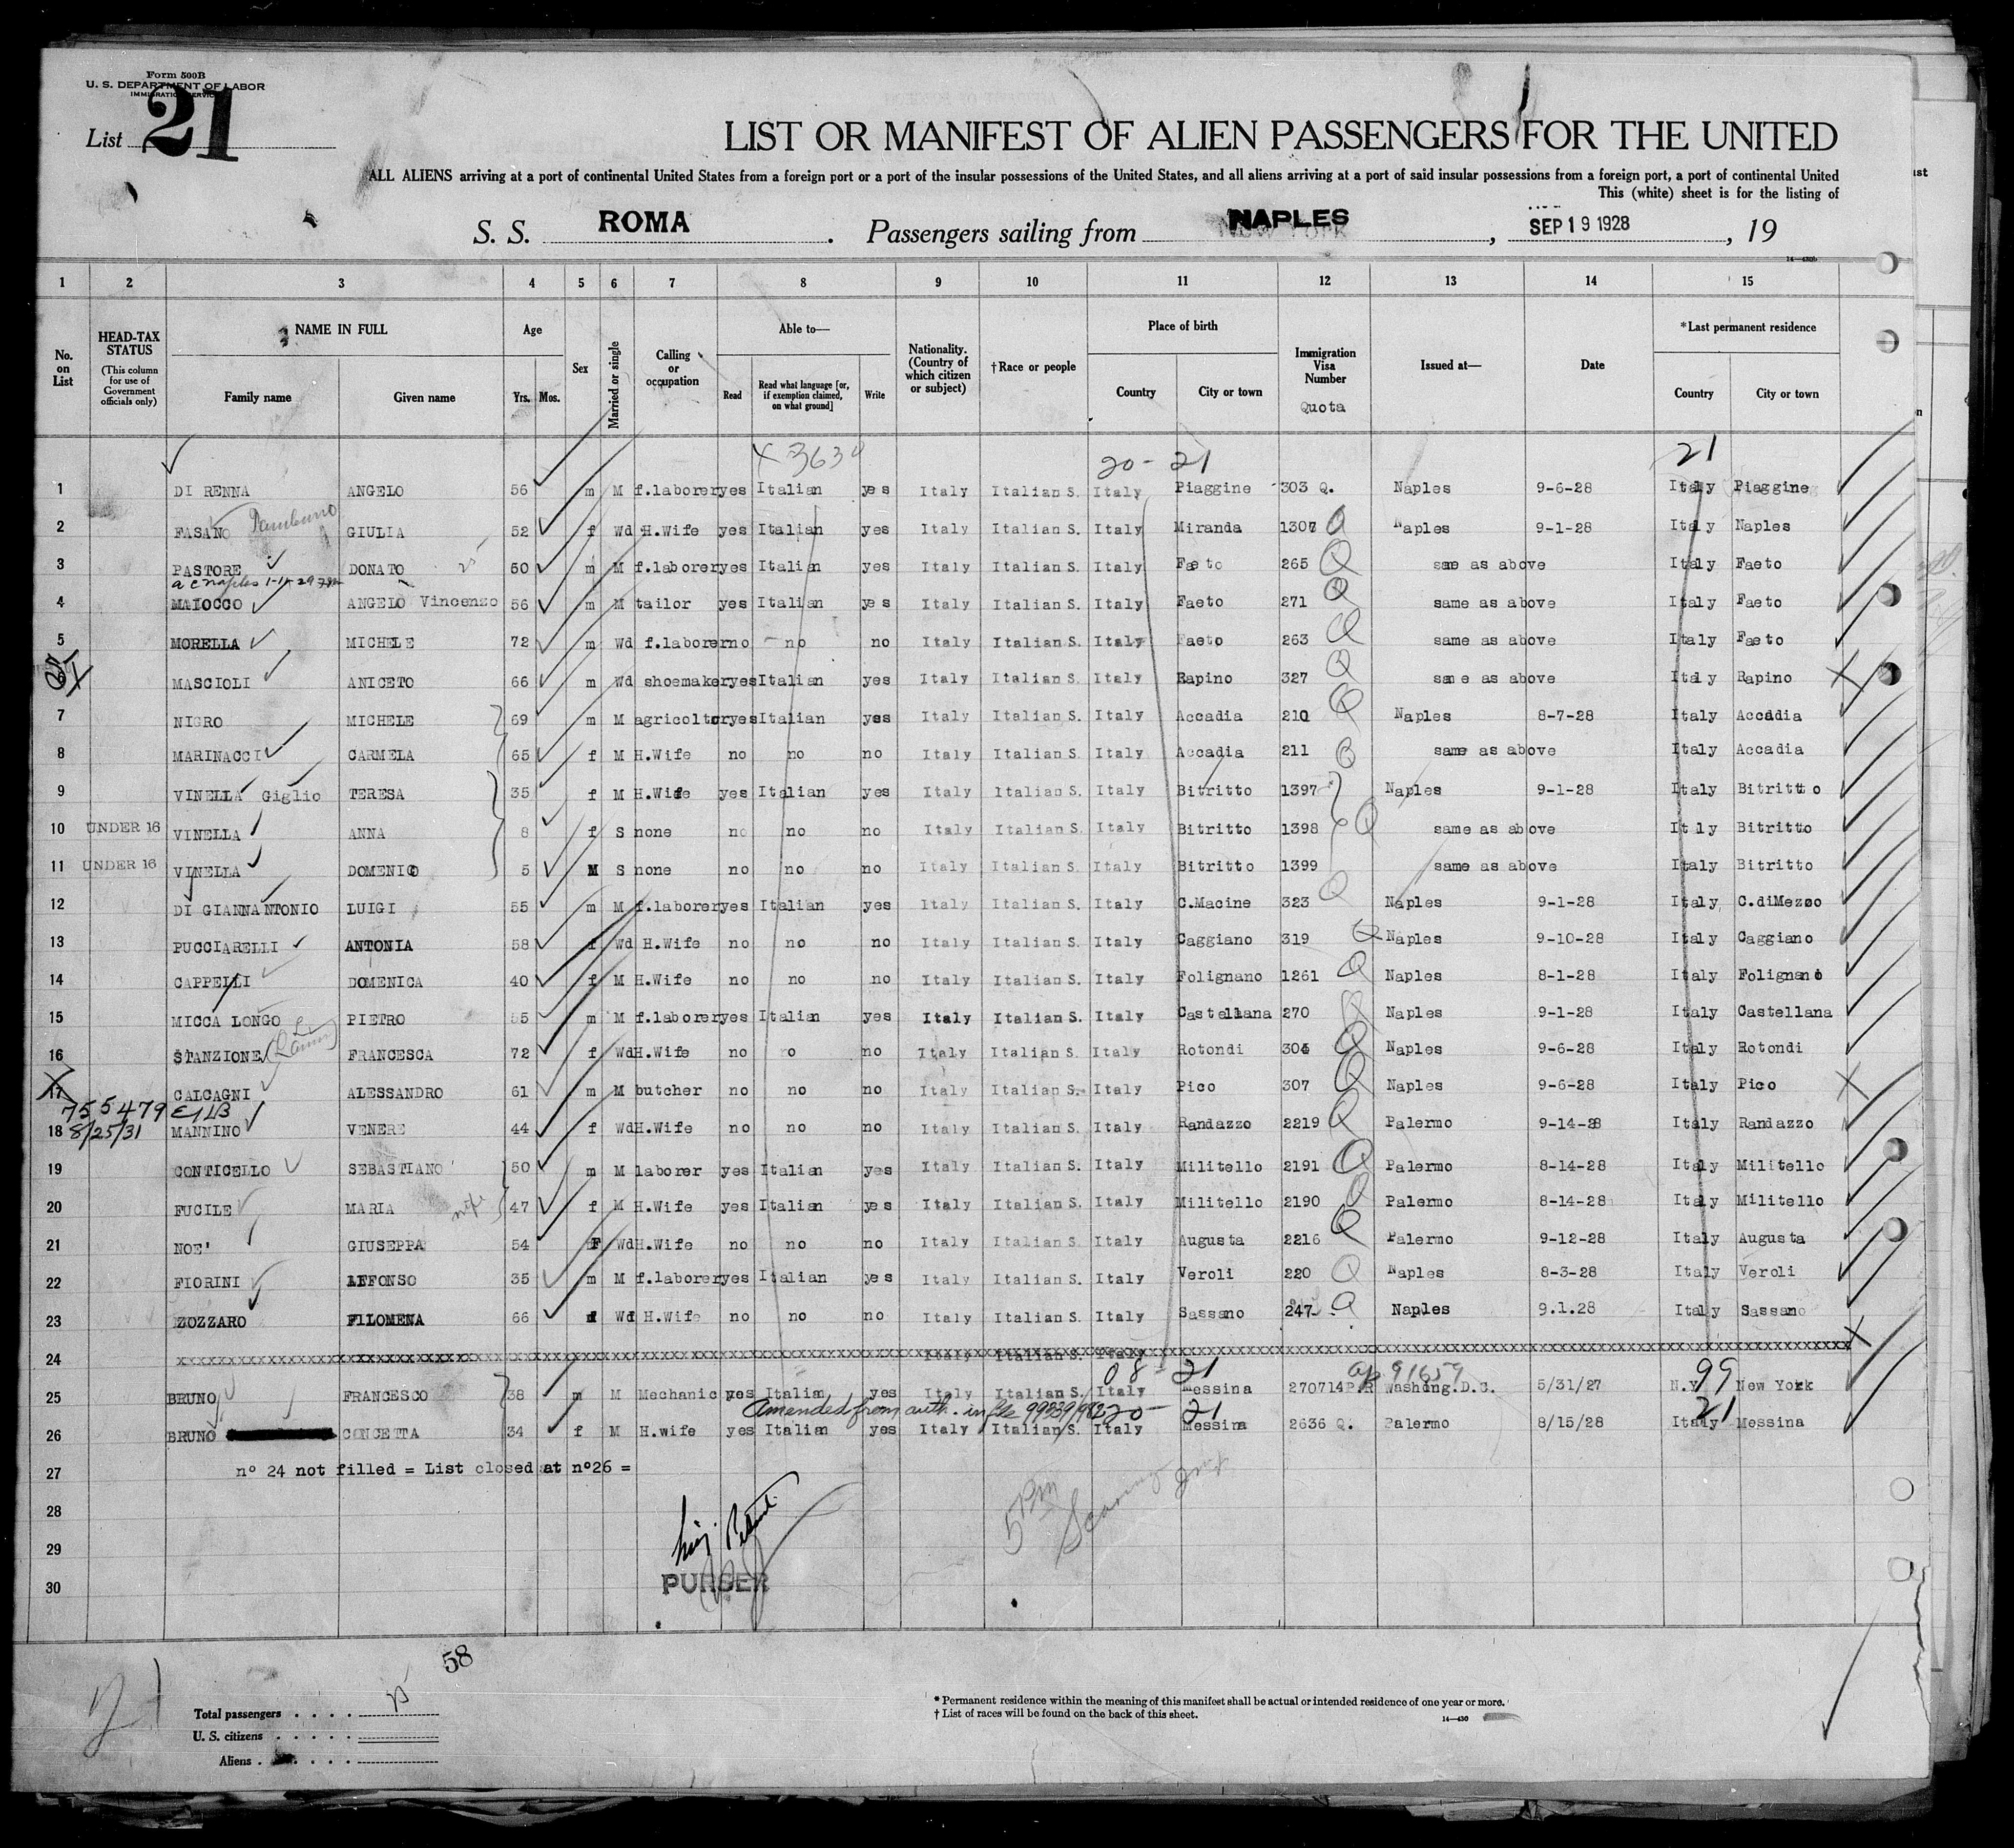 Form 500B
U. S. DEPARTMENT OF LABOR
IMMIGRATION SERVICE
List 21
LIST OR MANIFEST OF ALIEN PASSENGERS FOR THE UNITED
ALL ALIENS arriving at a port of continental United States from a foreign port or a port of the insular possessions of the United States, and all aliens arriving at a port of said insular possessions from a foreign port, a port of continental United
This (white) sheet is for the listing of
S. S. ROMA. Passengers sailing from NAPLES, SEP 19 1928, 19
1 2 3 4 5 6 7 8 9 10 11 12 13 14 15
No. on List
HEAD-TAX STATUS
(This column for use of Government officials only)
NAME IN FULL
Family name Given name
Age
Yrs. Mos.
Sex
Married or single
Calling or occupation
Able to—
Read
Read what language [or, if exemption claimed, on what ground]
Write
Nationality. (Country of which citizen or subject)
†Race or people
Place of birth
Country City or town
Immigration Visa Number
Quota
Issued at—
Date
*Last permanent residence
Country City or town
20 - 21 21
1 DI RENNA ANGELO 56 m M f.laborer yes Italian yes Italy Italian S. Italy Piaggine 303 Q. Naples 9-6-28 Italy Piaggine
2 FASANO GIULIA 52 f Wd H.Wife yes Italian yes Italy Italian S. Italy Miranda 1307 Q Naples 9-1-28 Italy Naples
3 PASTORE DONATO 50 m M f.laborer yes Italian yes Italy Italian S. Italy Faeto 265 Q same as above Italy Faeto
4 MAIOCCO ANGELO Vincenzo 56 m M tailor yes Italian yes Italy Italian S. Italy Faeto 271 Q same as above Italy Faeto
5 MORELLA MICHELE 72 m Wd f.laborer no no no Italy Italian S. Italy Faeto 263 Q same as above Italy Faeto
MASCIOLI ANICETO 66 m Wd shoemaker yes Italian yes Italy Italian S. Italy Rapino 327 Q same as above Italy Rapino
7 NIGRO MICHELE 69 m M agricoltor yes Italian yes Italy Italian S. Italy Accadia 210 Q Naples 8-7-28 Italy Accadia
8 MARINACCI CARMELA 65 f M H.Wife no no no Italy Italian S. Italy Accadia 211 Q same as above Italy Accadia
9 VINELLA Giglio TERESA 35 f M H.Wife yes Italian yes Italy Italian S. Italy Bitritto 1397 Naples 9-1-28 Italy Bitritto
10 UNDER 16 VINELLA ANNA 8 f S none no no no Italy Italian S. Italy Bitritto 1398 Q same as above Italy Bitritto
11 UNDER 16 VINELLA DOMENICO 5 M S none no no no Italy Italian S. Italy Bitritto 1399 same as above Italy Bitritto
12 DI GIANNANTONIO LUIGI 55 m M f.laborer yes Italian yes Italy Italian S. Italy C.Macine 323 Q Naples 9-1-28 Italy C.diMezzo
13 PUCCIARELLI ANTONIA 58 f Wd H.Wife no no no Italy Italian S. Italy Caggiano 319 Q Naples 9-10-28 Italy Caggiano
14 CAPPELLI DOMENICA 40 f M H.Wife no no no Italy Italian S. Italy Folignano 1261 Q Naples 8-1-28 Italy Folignano
15 MICCA LONGO PIETRO 55 m M f.laborer yes Italian yes Italy Italian S. Italy Castellana 270 Q Naples 9-1-28 Italy Castellana
16 STANZIONE FRANCESCA 72 f Wd H.Wife no o no Italy Italian S. Italy Rotondi 304 Q Naples 9-6-28 Italy Rotondi
17 CALCAGNI ALESSANDRO 61 m M butcher no no no Italy Italian S. Italy Pico 307 Q Naples 9-6-28 Italy Pico
755479
18 8/25/31 MANNINO VENERE 44 f Wd H.Wife no no no Italy Italian S. Italy Randazzo 2219 Q Palermo 9-14-28 Italy Randazzo
19 CONTICELLO SEBASTIANO 50 m M laborer yes Italian yes Italy Italian S. Italy Militello 2191 Q Palermo 8-14-28 Italy Militello
20 FUCILE MARIA wife 47 f M H.Wife yes Italian yes Italy Italian S. Italy Militello 2190 Q Palermo 8-14-28 Italy Militello
21 NOE' GIUSEPPA 54 F Wd H.Wife no no no Italy Italian S. Italy Augusta 2216 Q Palermo 9-12-28 Italy Augusta
22 FIORINI ALFONSO 35 m M f.laborer yes Italian yes Italy Italian S. Italy Veroli 220 Q Naples 8-3-28 Italy Veroli
23 ZOZZARO FILOMENA 66 f Wd H.Wife no no no Italy Italian S. Italy Sassano 247 Q Naples 9.1.28 Italy Sassano
24 Italy Italian S. Italy
08 - 21 91659 99
25 BRUNO FRANCESCO 38 m M Mechanic yes Italian yes Italy Italian S. Italy Messina 270714 P.R Washing.D.C. 5/31/27 N.Y. New York
Amended from auth. in file 99339/982 20 - 21 21
26 BRUNO CONCETTA 34 f M H.wife yes Italian yes Italy Italian S. Italy Messina 2636 Q. Palermo 8/15/28 Italy Messina
27 nº 24 not filled = List closed at nº26 =
28
29
30
5 PM
PURSER
58
21
Total passengers
U. S. citizens
Aliens
*Permanent residence within the meaning of this manifest shall be actual or intended residence of one year or more.
† List of races will be found on the back of this sheet.
14—430